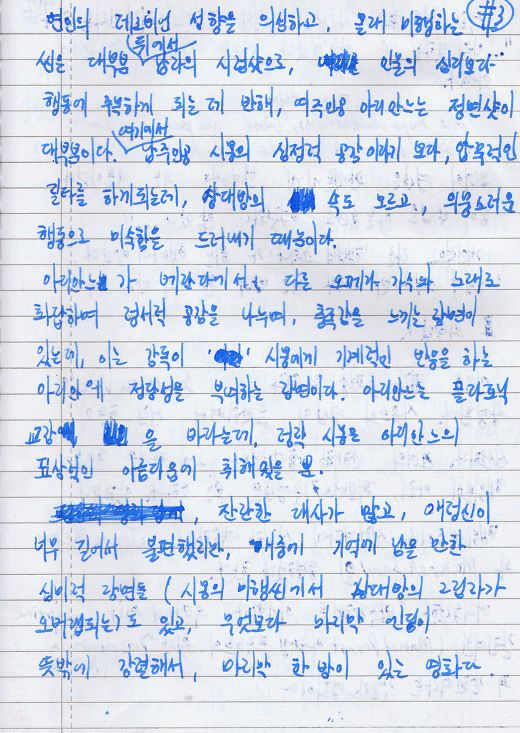 #3
연인의 레즈비언 성향을 의심하고, 몰래 미행하는
씬은 대부분 (뒤에서) 남자의 시점샷으로, 인물의 심리보다
행동에 주목하게 되는데 반해, 여주인공 아리안느는 정면샷이
대부분이다. (여기에서) 남주인공 시몽의 심정적 공감이라기 보다, 압묵적인
필터를 하게되는데, 상대방의 속도 모르고, 의뭉스러운
행동으로 미숙함을 드러내기 때문이다.
아리안느가 베란다에서, 다른 오페라 가수와 노래로
화답하며 정서적 공감을 나누며, 충족감을 느끼는 장면이
있는데, 이는 감독이 시몽에게 기계적인 반응을 하는
아리안에 정당성을 부여하는 장면이다. 아리안느는 플라토닉
교감 을 바라는데, 정작 시몽은 아리안느의
표상적인 아름다움에 취해있을 뿐.
, 잔잔한 대사가 많고, 애정신이
너무 길어서 불편했지만, 나중에 기억에 남을 만한
심미적 장면들 (시몽의 미행씬에서 상대방의 그림자가
오버랩되는)도 있고, 무엇보다 마지막 엔딩이
뜻밖에 강렬해서, 마지막 한방이 있는 영화다.